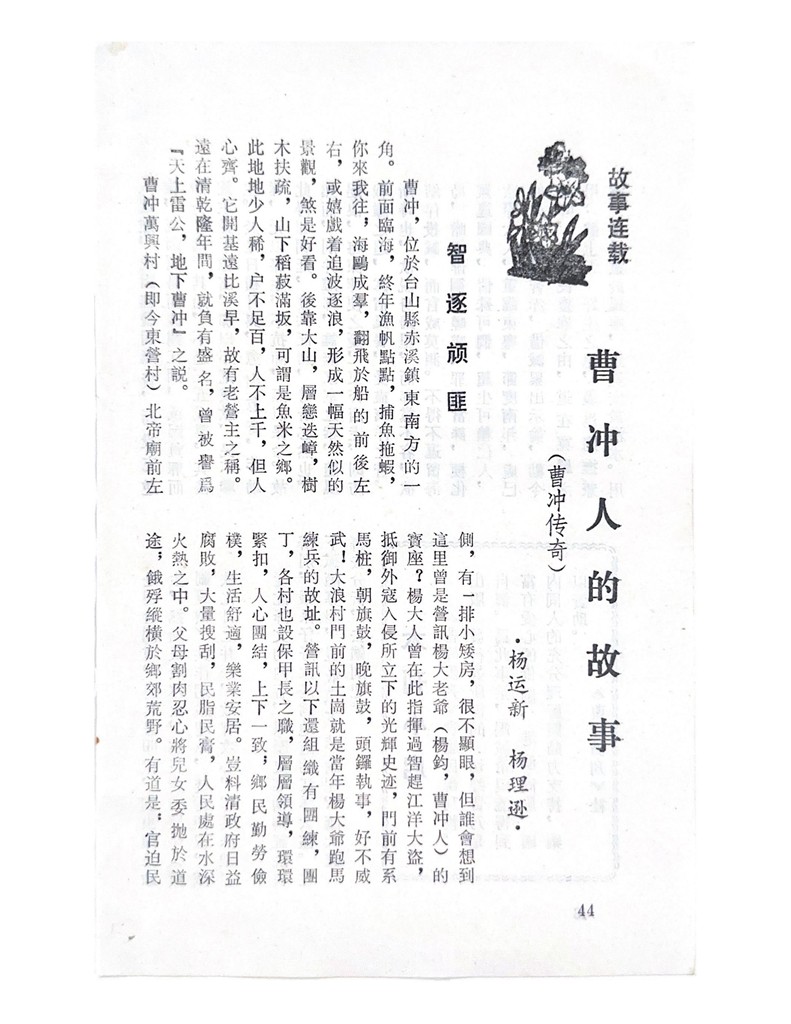 故事连载
曹冲人的故事
（曹冲传奇）
·杨运新 杨理逊·
智逐顽匪
曹冲，位於台山縣赤溪鎮東南方的一
角。前面臨海，終年漁帆點點，捕魚拖蝦，
你來我往，海鷗成羣，翻飛於船的前後左
右，或嬉戲着追波逐浪，形成一幅天然似的
景觀，煞是好看。後靠大山，層巒迭嶂，樹
木扶疏，山下稻菽滿坂，可謂是魚米之鄉。
此地地少人稀，户不足百，人不上千，但人
心齊。它開基遠比溪早，故有老營主之稱。
遠在清乾隆年間，就負有盛名，曾被譽爲
『天上雷公，地下曹冲』之説。
曹冲萬興村（即今東營村）北帝廟前左
側，有一排小矮房，很不顯眼，但誰會想到
這里曾是營訊楊大老爺（楊鈞，曹冲人）的
寳座？楊大人曾在此指揮過智趕江洋大盗，
抵御外寇入侵所立下的光輝史迹，門前有系
馬桩，朝旗鼓，晚旗鼓，頭鑼執事，好不威
武！大浪村門前的土崗就是當年楊大爺跑馬
練兵的故址。營訊以下還組織有團練，團
丁，各村也設保甲長之職，層層領導，環環
緊扣，人心團結，上下一致；鄉民勤勞儉
樸，生活舒適，樂業安居。豈料清政府日益
腐敗，大量搜刮，民脂民膏，人民處在水深
火熱之中。父母割肉忍心將兒女委抛於道
途，餓殍縱橫於鄉郊荒野。有道是：官迫民
44